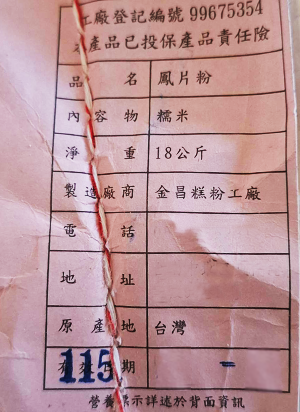 工廠登記編號 99675354
本產品已投保產品責任險
品名 鳳片粉
內容物 糯米
淨重 18公斤
製造廠商 金昌糕粉工廠
電話
地址
原產地 台灣
有效日期 115
營養標示詳述於背面資訊